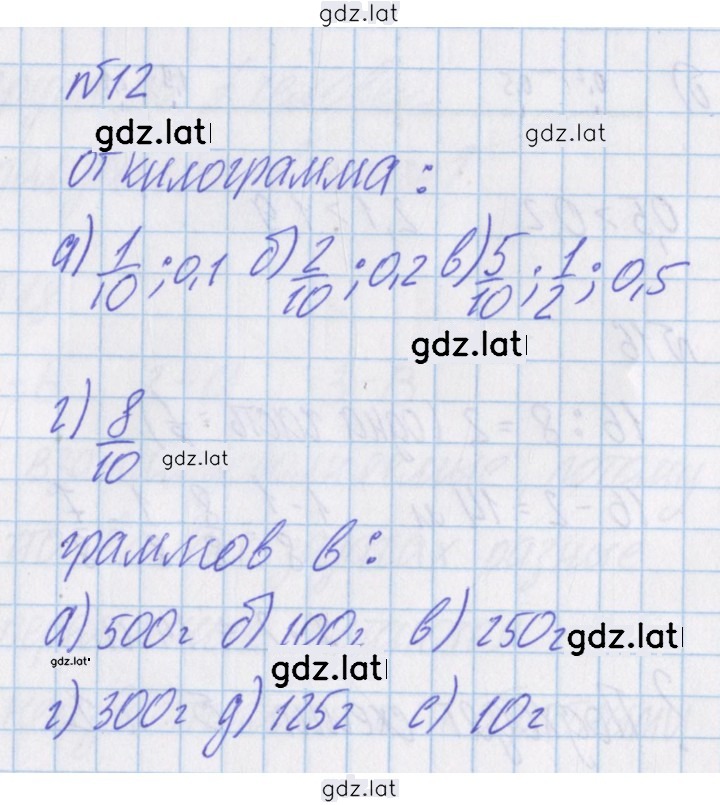 gdz.lat
№12
gdz.lat gdz.lat
от килограмма:
а) 1/10; 0,1 б) 2/10; 0,2 в) 5/10; 1/2; 0,5
gdz.lat
г) 8/10
gdz.lat
граммов в:
а) 500г б) 100г в) 250г gdz.lat
gdz.lat gdz.lat
г) 300г д) 125г е) 10г
gdz.lat